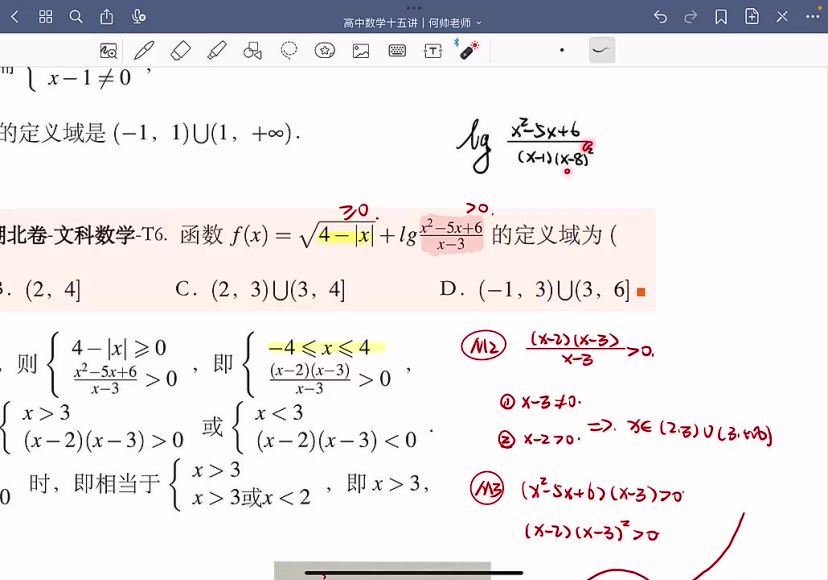 高中数学十五讲 | 何帅老师
x−1≠0 ,
的定义域是 (−1, 1)⋃(1, +∞).
lg (x²−5x+6)/((x−1)(x−8)²)
≥0. >0.
北卷-文科数学-T6. 函数 f(x) = √(4−|x|) + lg (x²−5x+6)/(x−3) 的定义域为 (
B. (2, 4] C. (2, 3)⋃(3, 4] D. (−1, 3)⋃(3, 6]
则 { 4−|x|⩾0 , 即 { −4⩽x⩽4 ,
(x²−5x+6)/(x−3) > 0 ((x−2)(x−3))/(x−3) > 0
{ x>3 或 { x<3 .
(x−2)(x−3)>0 (x−2)(x−3)<0
0 时, 即相当于 { x>3 , 即 x>3,
x>3或x<2
M2 ((x-2)(x-3))/(x-3) >0.
① x-3≠0.
② x-2>0. => x∈(2.3)∪(3.+∞)
M3 (x²-5x+6)(x-3)>0
(x-2)(x-3)²>0